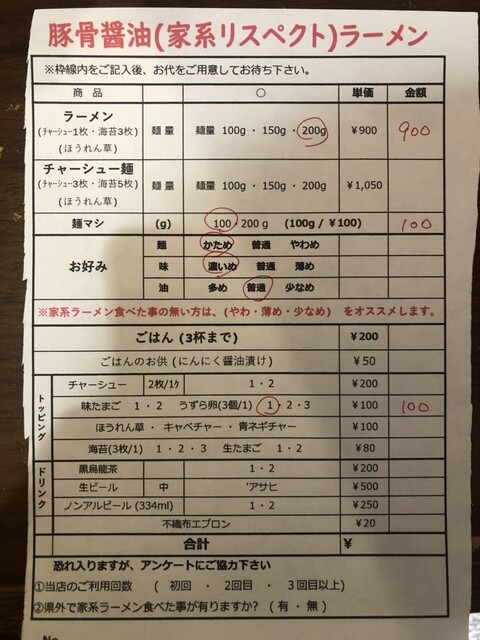 豚骨醤油(家系リスペクト)ラーメン
※枠線内をご記入後、お代をご用意してお待ち下さい。
商 品 ○ 単価 金額
ラーメン
(ﾁｬｰｼｭｰ1枚・海苔3枚) 麺 量 麺量 100g ・ 150g ・ 200g ¥900 900
(ほうれん草)
チャーシュー麺
(ﾁｬｰｼｭｰ3枚・海苔5枚) 麺 量 麺量 100g ・ 150g ・ 200g ¥1,050
(ほうれん草)
麺マシ (g) 100・200 g (100g / ¥100) 100
お好み 麺 かため 普通 やわめ
味 濃いめ 普通 薄め
油 多め 普通 少なめ
※家系ラーメン食べた事の無い方は、(やわ・薄め・少なめ) をオススメします。
ごはん (3杯まで) ¥200
ごはんのお供 (にんにく醤油漬け) ¥50
トッピング
チャーシュー 2枚/1ｹ 1・2 ¥200
味たまご 1・2 うずら卵(3個/1) 1・2・3 ¥100 100
ほうれん草 ・ キャベチャー ・ 青ネギチャー ¥100
海苔(3枚/1) 1 ・ 2 ・ 3 生たまご 1 ・ 2 ¥80
ドリンク
黒烏龍茶 1・2 ¥200
生ビール 中 'アサヒ ¥500
ノンアルビール (334ml) 1・2 ¥250
不織布エプロン ¥20
合計 ¥
恐れ入りますが、アンケートにご協力下さい
①当店のご利用回数 ( 初回 ・ 2回目 ・ 3回目以上)
②県外で家系ラーメン食べた事が有りますか? ( 有 ・ 無 )
No